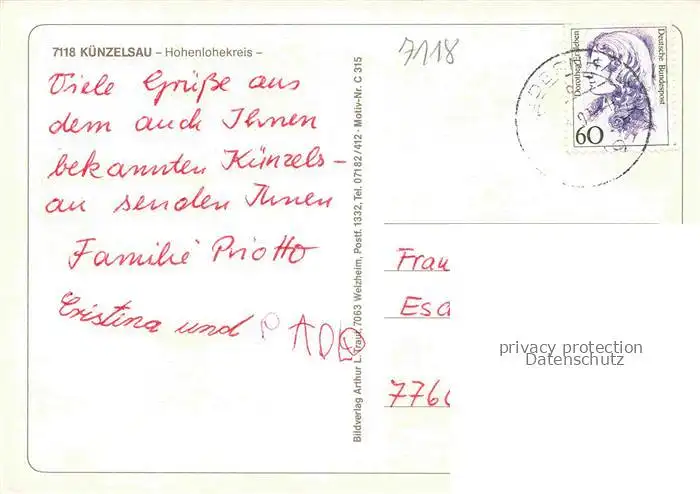 7118 KÜNZELSAU – Hohenlohekreis –
7118
Viele Grüße aus
dem auch Ihnen
bekannten Künzels-
au senden Ihnen
Familie Priotto
Cristina und
Bildverlag Arthur L. Trauf, 7063 Welzheim, Postf. 1332, Tel. 07182/412 · Motiv-Nr. C 315
Dorothea Erxleben
Deutsche Bundespost
60
Frau
Esc
7760
privacy protection
Datenschutz